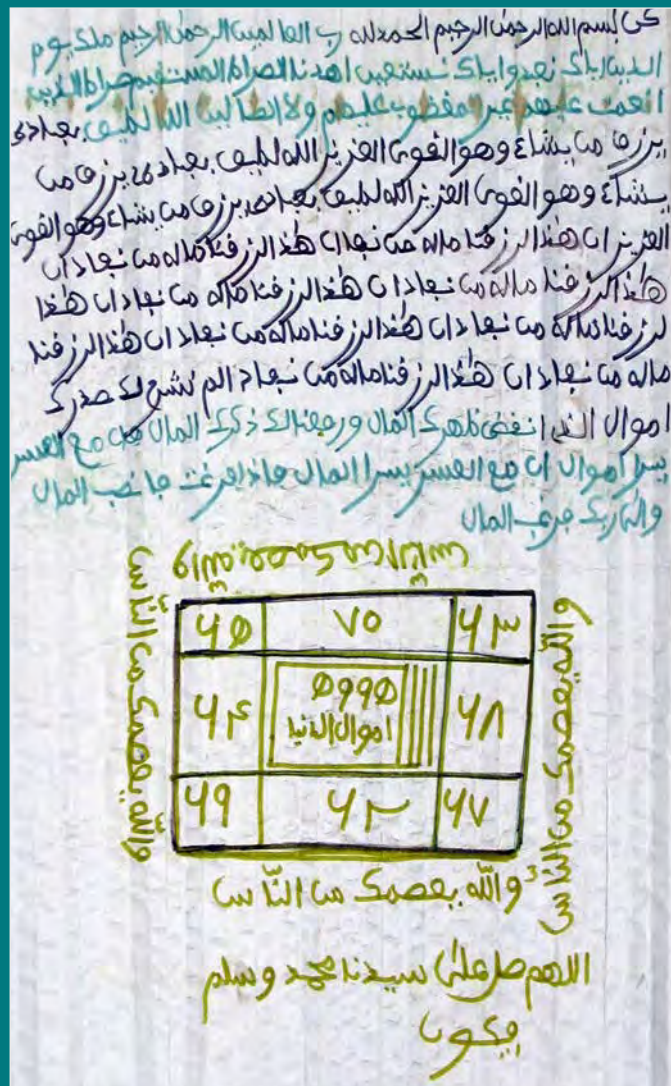 كن بسم الله الرحمن الرحيم الحمدلله رب العالمين الرحمن الرحيم ملك يوم
الدين اياك نعبد واياك نستعين اهدنا الصراط المستقيم صراط الذين
انعمت عليهم غير المغظوب عليهم ولا الظالين الله لطيف بعباده
يرزق من يشاء وهو القوى العزيز الله لطيف بعباده يرزق من
يشاء وهو القوى العزيز الله لطيف بعباده يرزق من يشاء وهو القوى
العزيز ان هٰذالرزقنا ماله من نفاد ان هٰذالرزقنا ماله من نفاد ان
هٰذالرزقنا ماله من نفاد ان هٰذالرزقنا ماله من نفاد ان هٰذا
لرزقنا ماله من نفاد ان هٰذالرزقنا ماله من نفاد ان هٰذالرزقنا
ماله من نفاد ان هٰذالرزقنا ماله من نفاد الم نشرح لك صدرك
اموال الذى انقض ظهرك المال ورفعنالك ذكرك المال مع العسر
يسرا اموال ان مع العسر يسرا المال فاذا فرغت فانصب المال
والى ربك فرغب المال
والله يعصمك من الناس
۶۵ ۷۰ ۶۳
۶۴ ۵۹۹۵ ۶۸
اموال الدنيا
۶۹ ۶۲ ۶۷
والله يعصمك من الناس
والله يعصمك من الناس
والله يعصمك من النّاس
اللهم صل على سيدنا محمد وسلم
فيكون